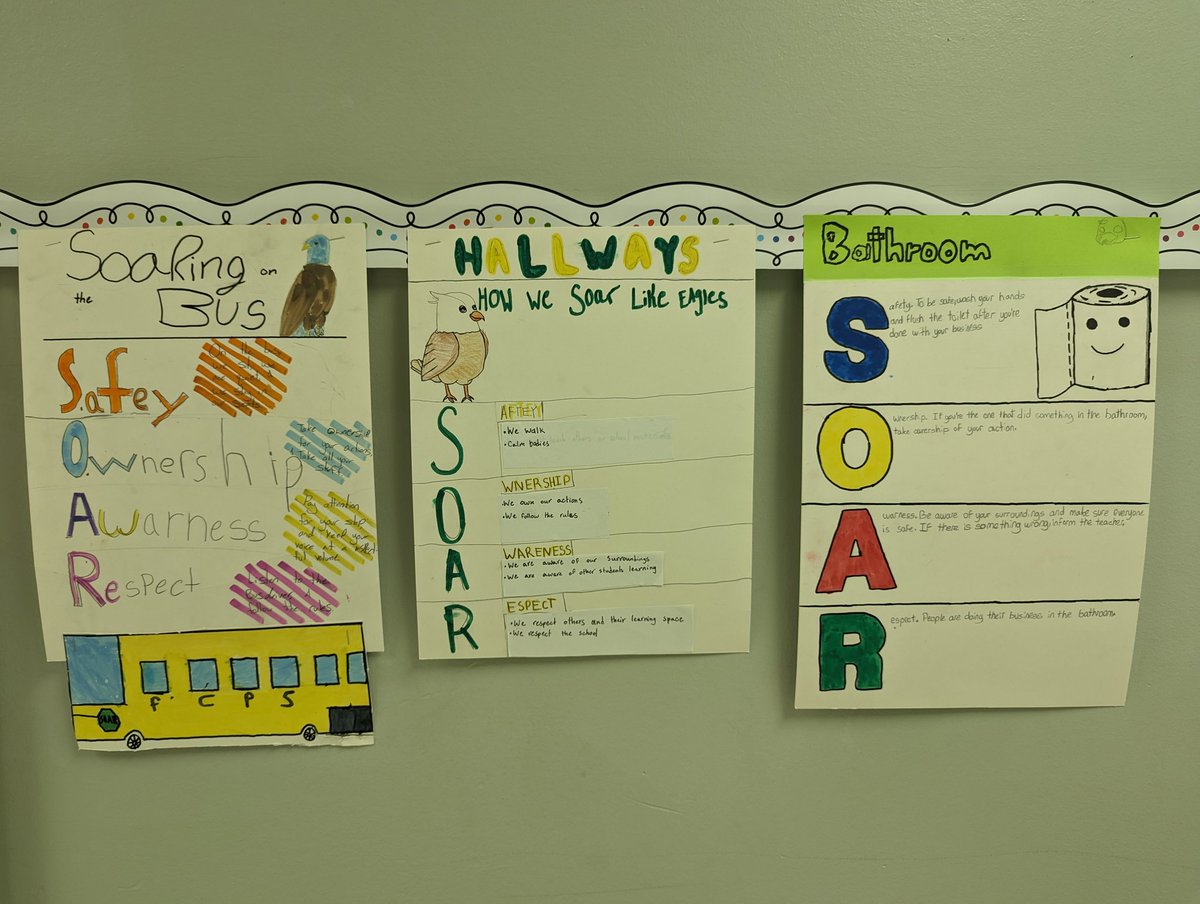 Soaring on
the BUS
S.afey
On the bus
we sit
O.wnership
Take Ownership
for your actions
& Take all your
stuff
Awarness
Pay attention
for your stop
and keep your
voice at a respect
ful volume.
Respect
Listen to the
Busdriver &
follow the rules
F C P S
HALLWAYS
How We Soar Like Eagles
S AFTEY
•We walk
•Calm bodies
O WNERSHIP
•We own our actions
•We follow the rules
A WARENESS
•We are aware of our surroundings
•We are aware of other students learning
R ESPECT
•We respect others and their learning space
•We respect the school
Bathroom
S afety. To be safe, wash your hands
and flush the toilet after you're
done with your business
O wnership. If you're the one that did something in the bathroom,
take ownership of your action.
A warness. Be aware of your surroundings and make sure everyone
is safe. If there is something wrong, inform the teacher.
R espect. People are doing their business in the bathroom.